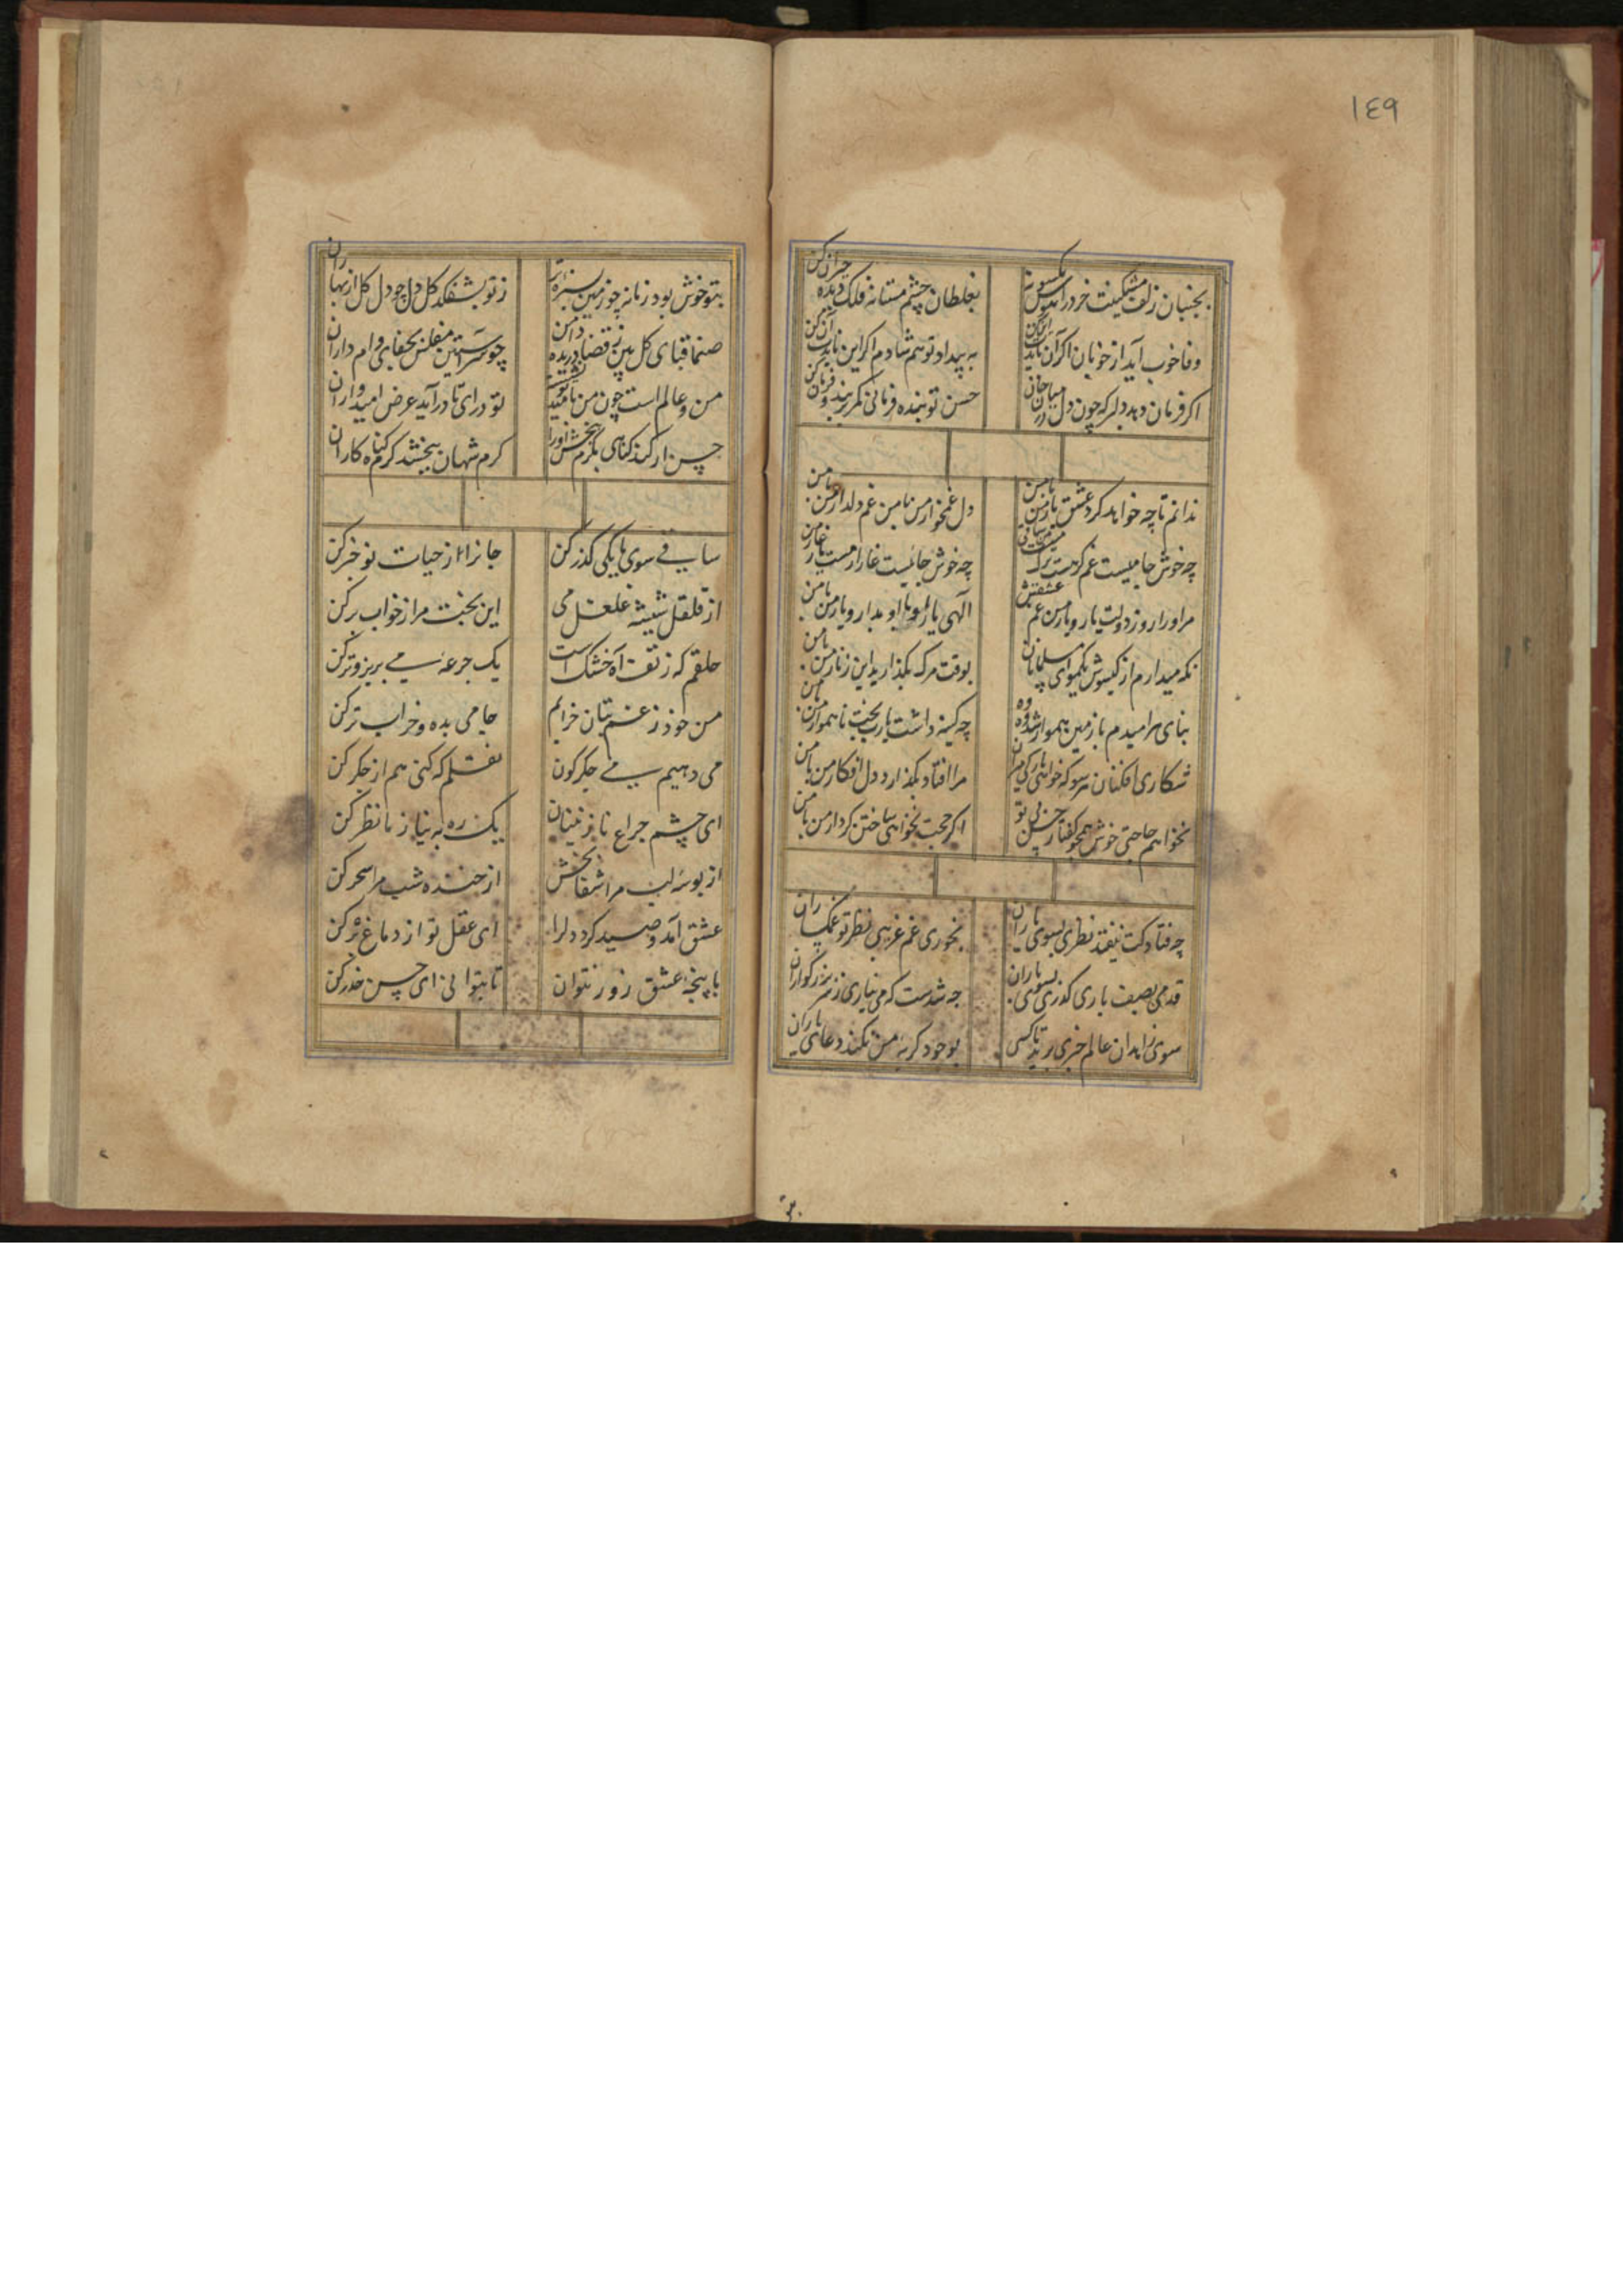 ١٤٩
بجنبان زلف مشکینت خرد را
بغلطان چشم مستانه فلک را دیده حیران کن
وفا خوب آید از خوبان اکر آن
به بیداد تو هم شادم اکر این
اکر فرمان دهد دلبر که چون دل در میان جان
حسن تو بنده فرمانی کمر بند و فرمان کن
ندانم تا چه خواهد کرد عشق یار من با من
دل غمخوار من با من غم دلدار من با من
چه خوش جامیست غم
چه خوش جائیست غار
مر او را روز دولت یار و یار من غم عشقش
الهی یار او با او بدار و یار من با من
نکه میدارم از کیسوش یکموی ای مسلمانان
بوقت مرکه بکذارید این زنار من با من
بنای هر امیدم با زمین هموار شد
چه کینه داشت یارب بخت ناهموار من با من
شکاری افکنان هر سو که خواهی
مرا افتاد بکذارد دل افکار من با من
نخواهم حاجتی خوش همچو کفتار حسن بی تو
اکر حجت نخواهی ساختن کردار من با من
چه فتادکت نیفتد نظری بسوی یاران
نخوری غم غریبی نظر تو غمکساران
قدمی بصیف باری کذری بسوی یاران
چه شدست که می نیاری ز سر بزرکواران
سوی زاهدان عالم خبری برید تا کسی
بوجود کریه من نکند دعای باران
بتو خوش بود زمانه چو زمین بسبزه تر
ز تو بشفکد کل دل چو دل کل از بهاران
صنما قبای کل بین ز قضا دریده دامن
چو سر آستین مفلس بجفای وام داران
من و عالم است چون من بامید تو نشسته
تو درای تا درآید عرض امیدواران
حسن ار کند کناهی بکرم ببخش او را
کرم شهان ببخشد کرم کناه کاران
ساقی سوی ما یکی کذر کن
جانرا از حیات نو خبر کن
از قلقل شیشه غلغل می
این بخت مرا ز خواب بر کن
حلقم که ز تف آه خشک است
یک جرعه می بریز و تر کن
من خود ز غم بتان خرابم
جامی بده و خراب تر کن
می دهیم می جکرکون
نقلم که کنی هم از جکر کن
ای چشم چراغ نازنینان
یک ره به نیاز ما نظر کن
از بوسه لب مرا شفا بخش
از خنده شب مرا سحر کن
عشق آمد و صید کرد دلرا
ای عقل تو از دماغ بر کن
با پنجه عشق زور نتوان
تا بتوانی ای حسن حذر کن